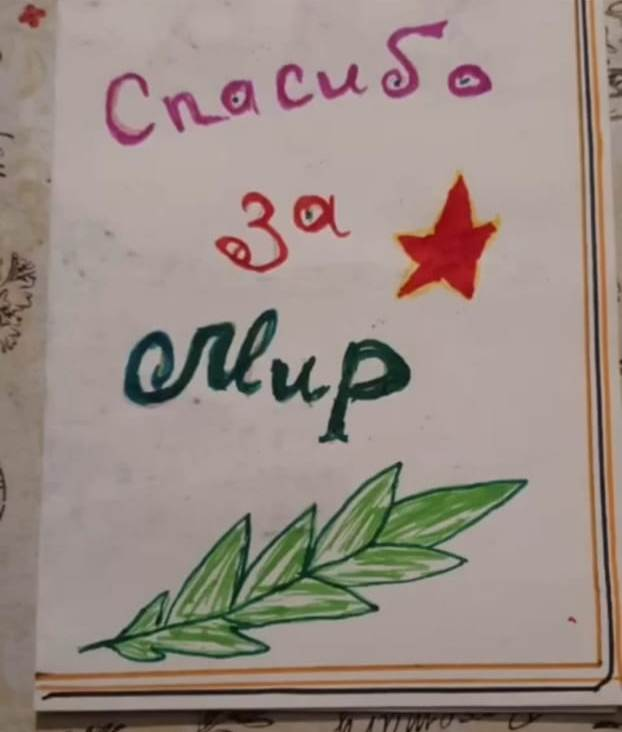 Спасибо
за
Мир